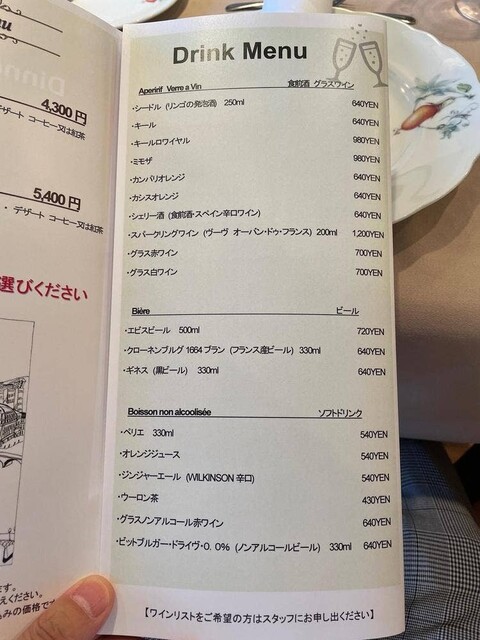 nu
4,300円
デザート コーヒー又は紅茶
5,400円
・ デザート コーヒー又は紅茶
選びください
Drink Menu
Aperirif Verre a Vin 食前酒 グラスワイン
・シードル (リンゴの発泡酒) 250ml 640YEN
・キール 640YEN
・キールロワイヤル 980YEN
・ミモザ 980YEN
・カンパリオレンジ 640YEN
・カシスオレンジ 640YEN
・シェリー酒 (食前酒・スペイン辛口ワイン) 640YEN
・スパークリングワイン (ヴーヴ オーバン・ドゥ・フランス) 200ml 1,200YEN
・グラス赤ワイン 700YEN
・グラス白ワイン 700YEN
Bière ビール
・エビスビール 500ml 720YEN
・クローネンブルグ 1664 ブラン (フランス産ビール) 330ml 640YEN
・ギネス (黒ビール) 330ml 640YEN
Boisson non alcoolisée ソフトドリンク
・ペリエ 330ml 540YEN
・オレンジジュース 540YEN
・ジンジャーエール (WILKINSON 辛口) 540YEN
・ウーロン茶 430YEN
・グラスノンアルコール赤ワイン 640YEN
・ビットブルガー・ドライヴ・0.0% (ノンアルコールビール) 330ml 640YEN
【ワインリストをご希望の方はスタッフにお申し出ください】
ます。
えください。
込みの価格です